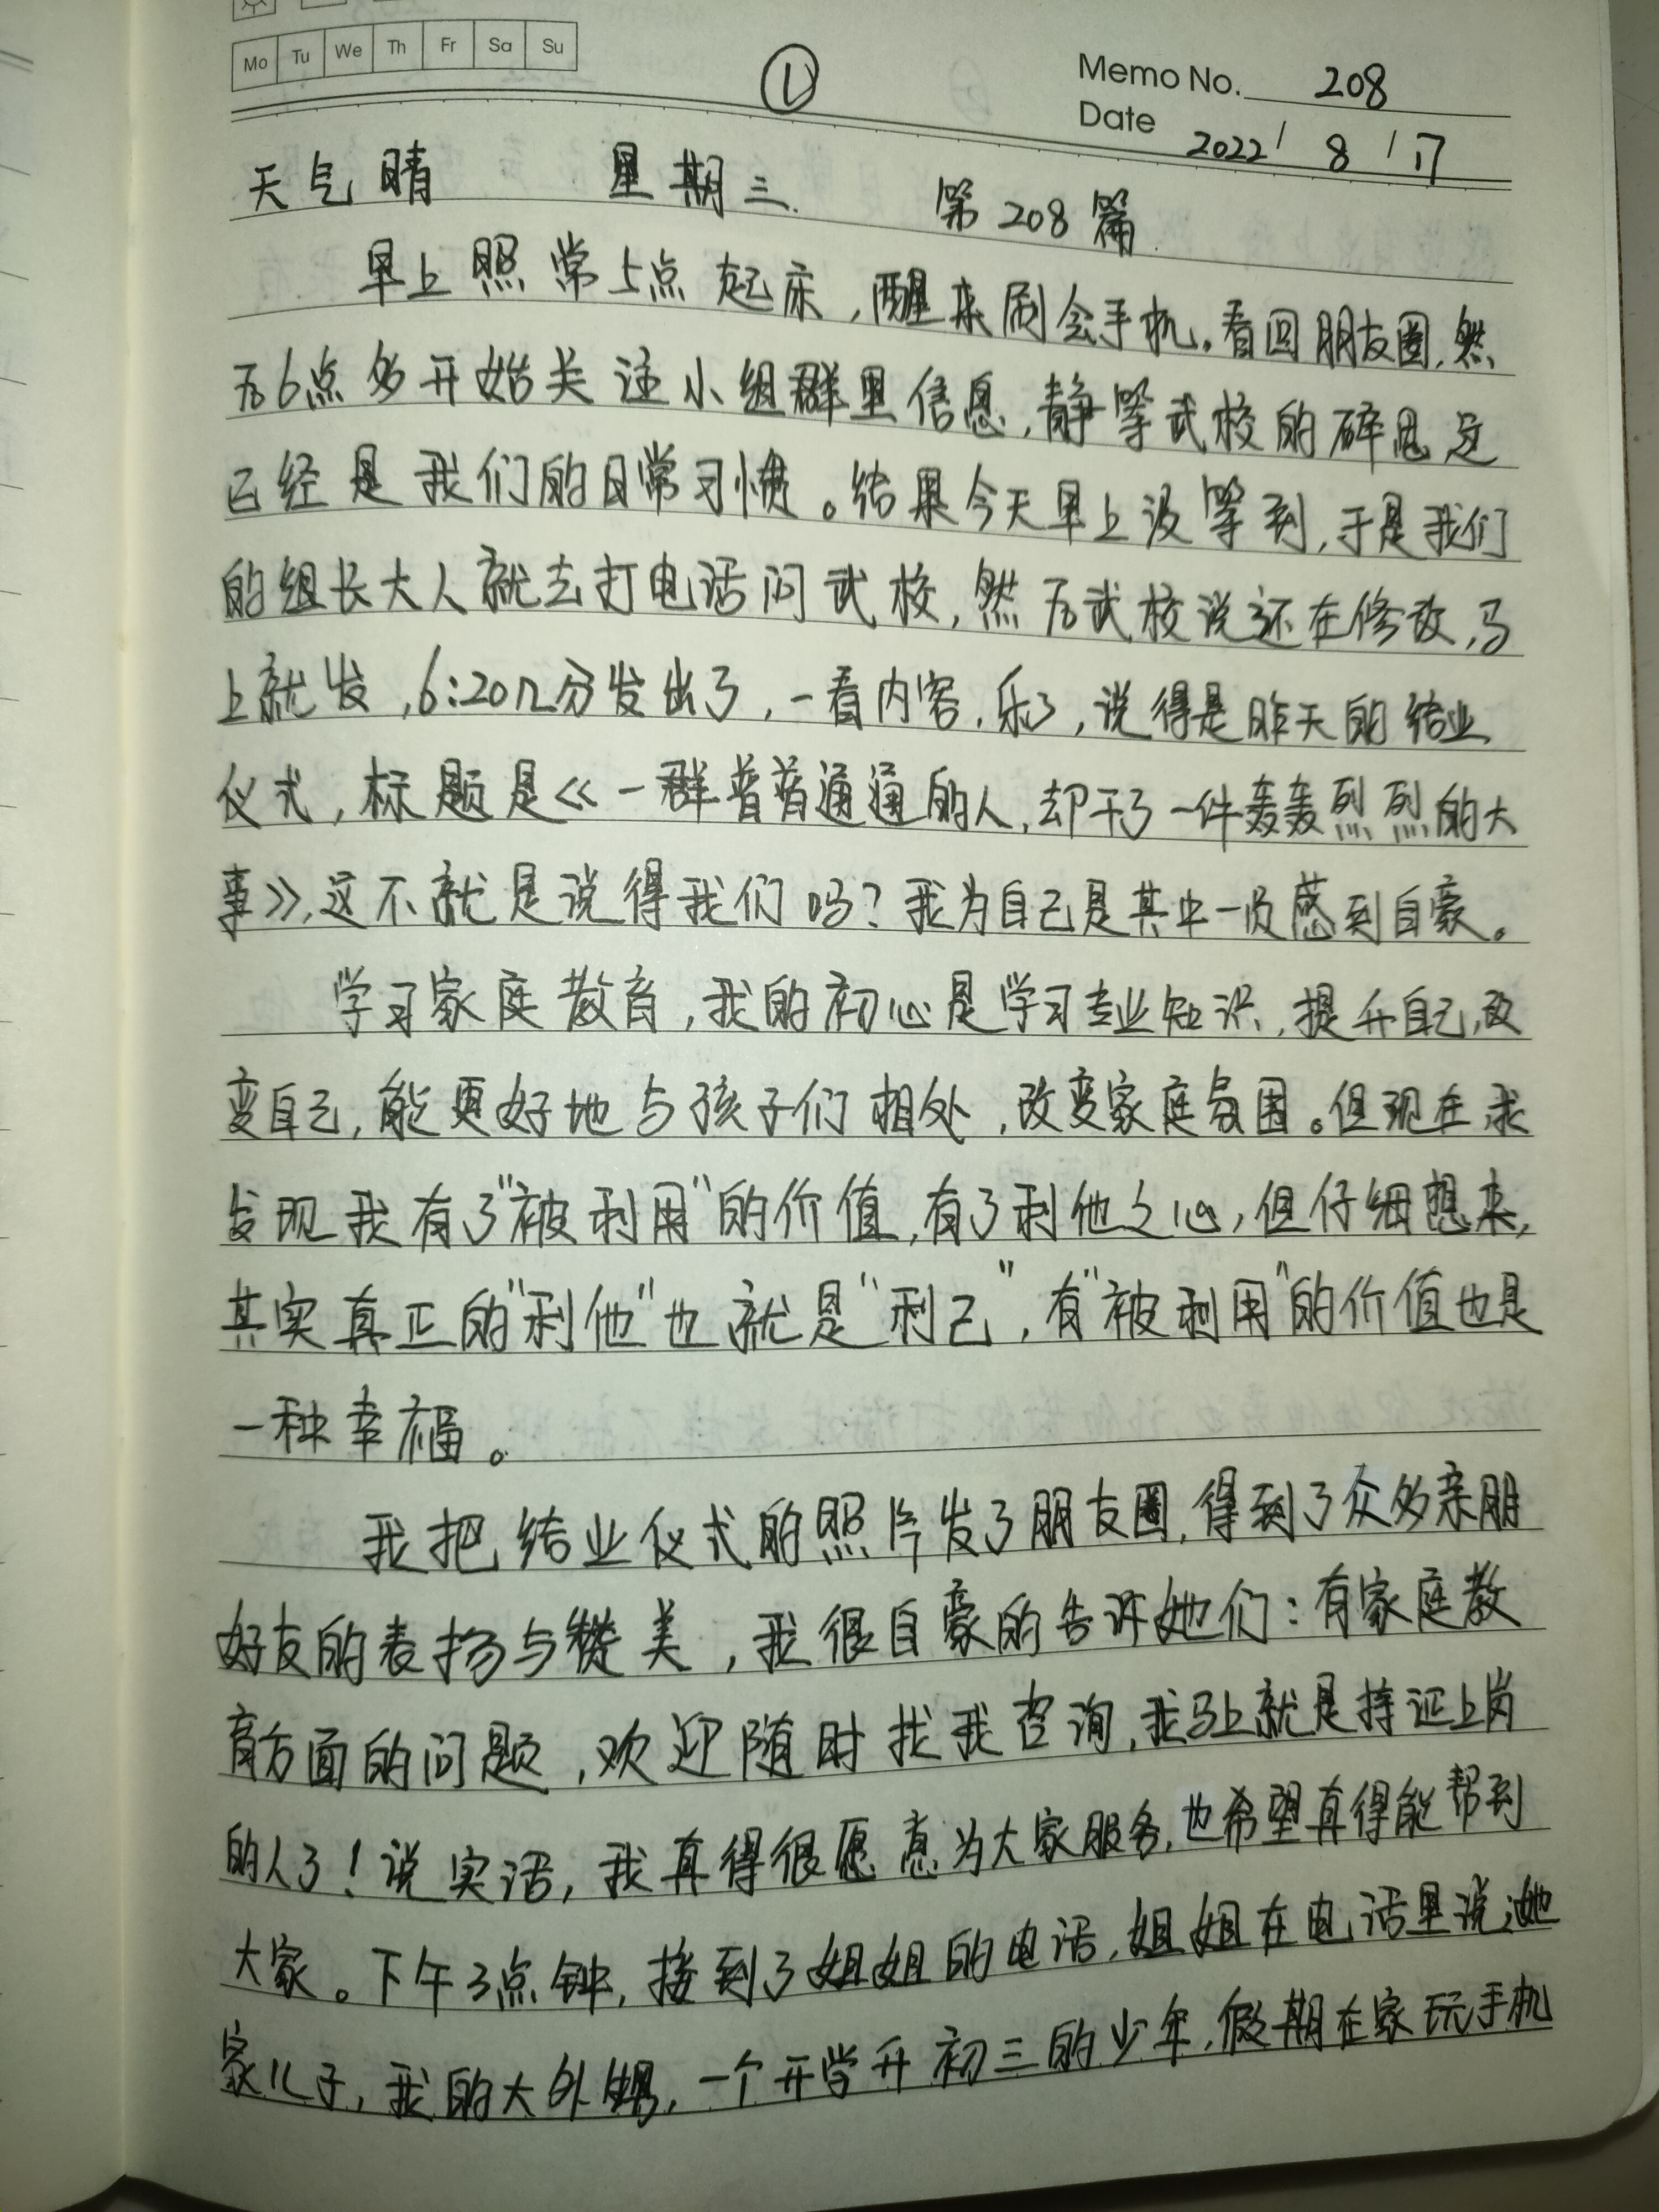 Mo Tu We Th Fr Sa Su
①
Memo No. 208
Date 2022 / 8 / 17
天气晴 星期三. 第208篇.
早上照常5点起床,醒来刷会手机。看回朋友圈,然
后6点多开始关注小组群里信息,静等武校的碎思这
已经是我们的日常习惯。结果今天早上没等到,于是我们
的组长大人就去打电话问武校,然后武校说还在修改,马
上就发,6:20几分发出了,一看内容,乐了,说得是昨天的结业
仪式,标题是《一群普普通通的人,却干了一件轰轰烈烈的大
事》,这不就是说得我们吗?我为自己是其中一员感到自豪。
学习家庭教育,我的初心是学习专业知识,提升自己,改
变自己,能更好地与孩子们相处,改变家庭氛围。但现在我
发现我有了"被利用"的价值,有了利他之心,但仔细想来,
其实真正的"利他"也就是"利己",有"被利用"的价值也是
一种幸福。
我把结业仪式的照片发了朋友圈,得到了众多亲朋
好友的表扬与赞美,我很自豪的告诉她们:有家庭教
育方面的问题,欢迎随时找我咨询,我马上就是持证上岗
的人了!说实话,我真得很愿意为大家服务,也希望真得能帮到
大家。下午3点钟,接到了姐姐的电话,姐姐在电话里说她
家儿子,我的大外甥,一个开学升初三的少年,假期在家玩手机